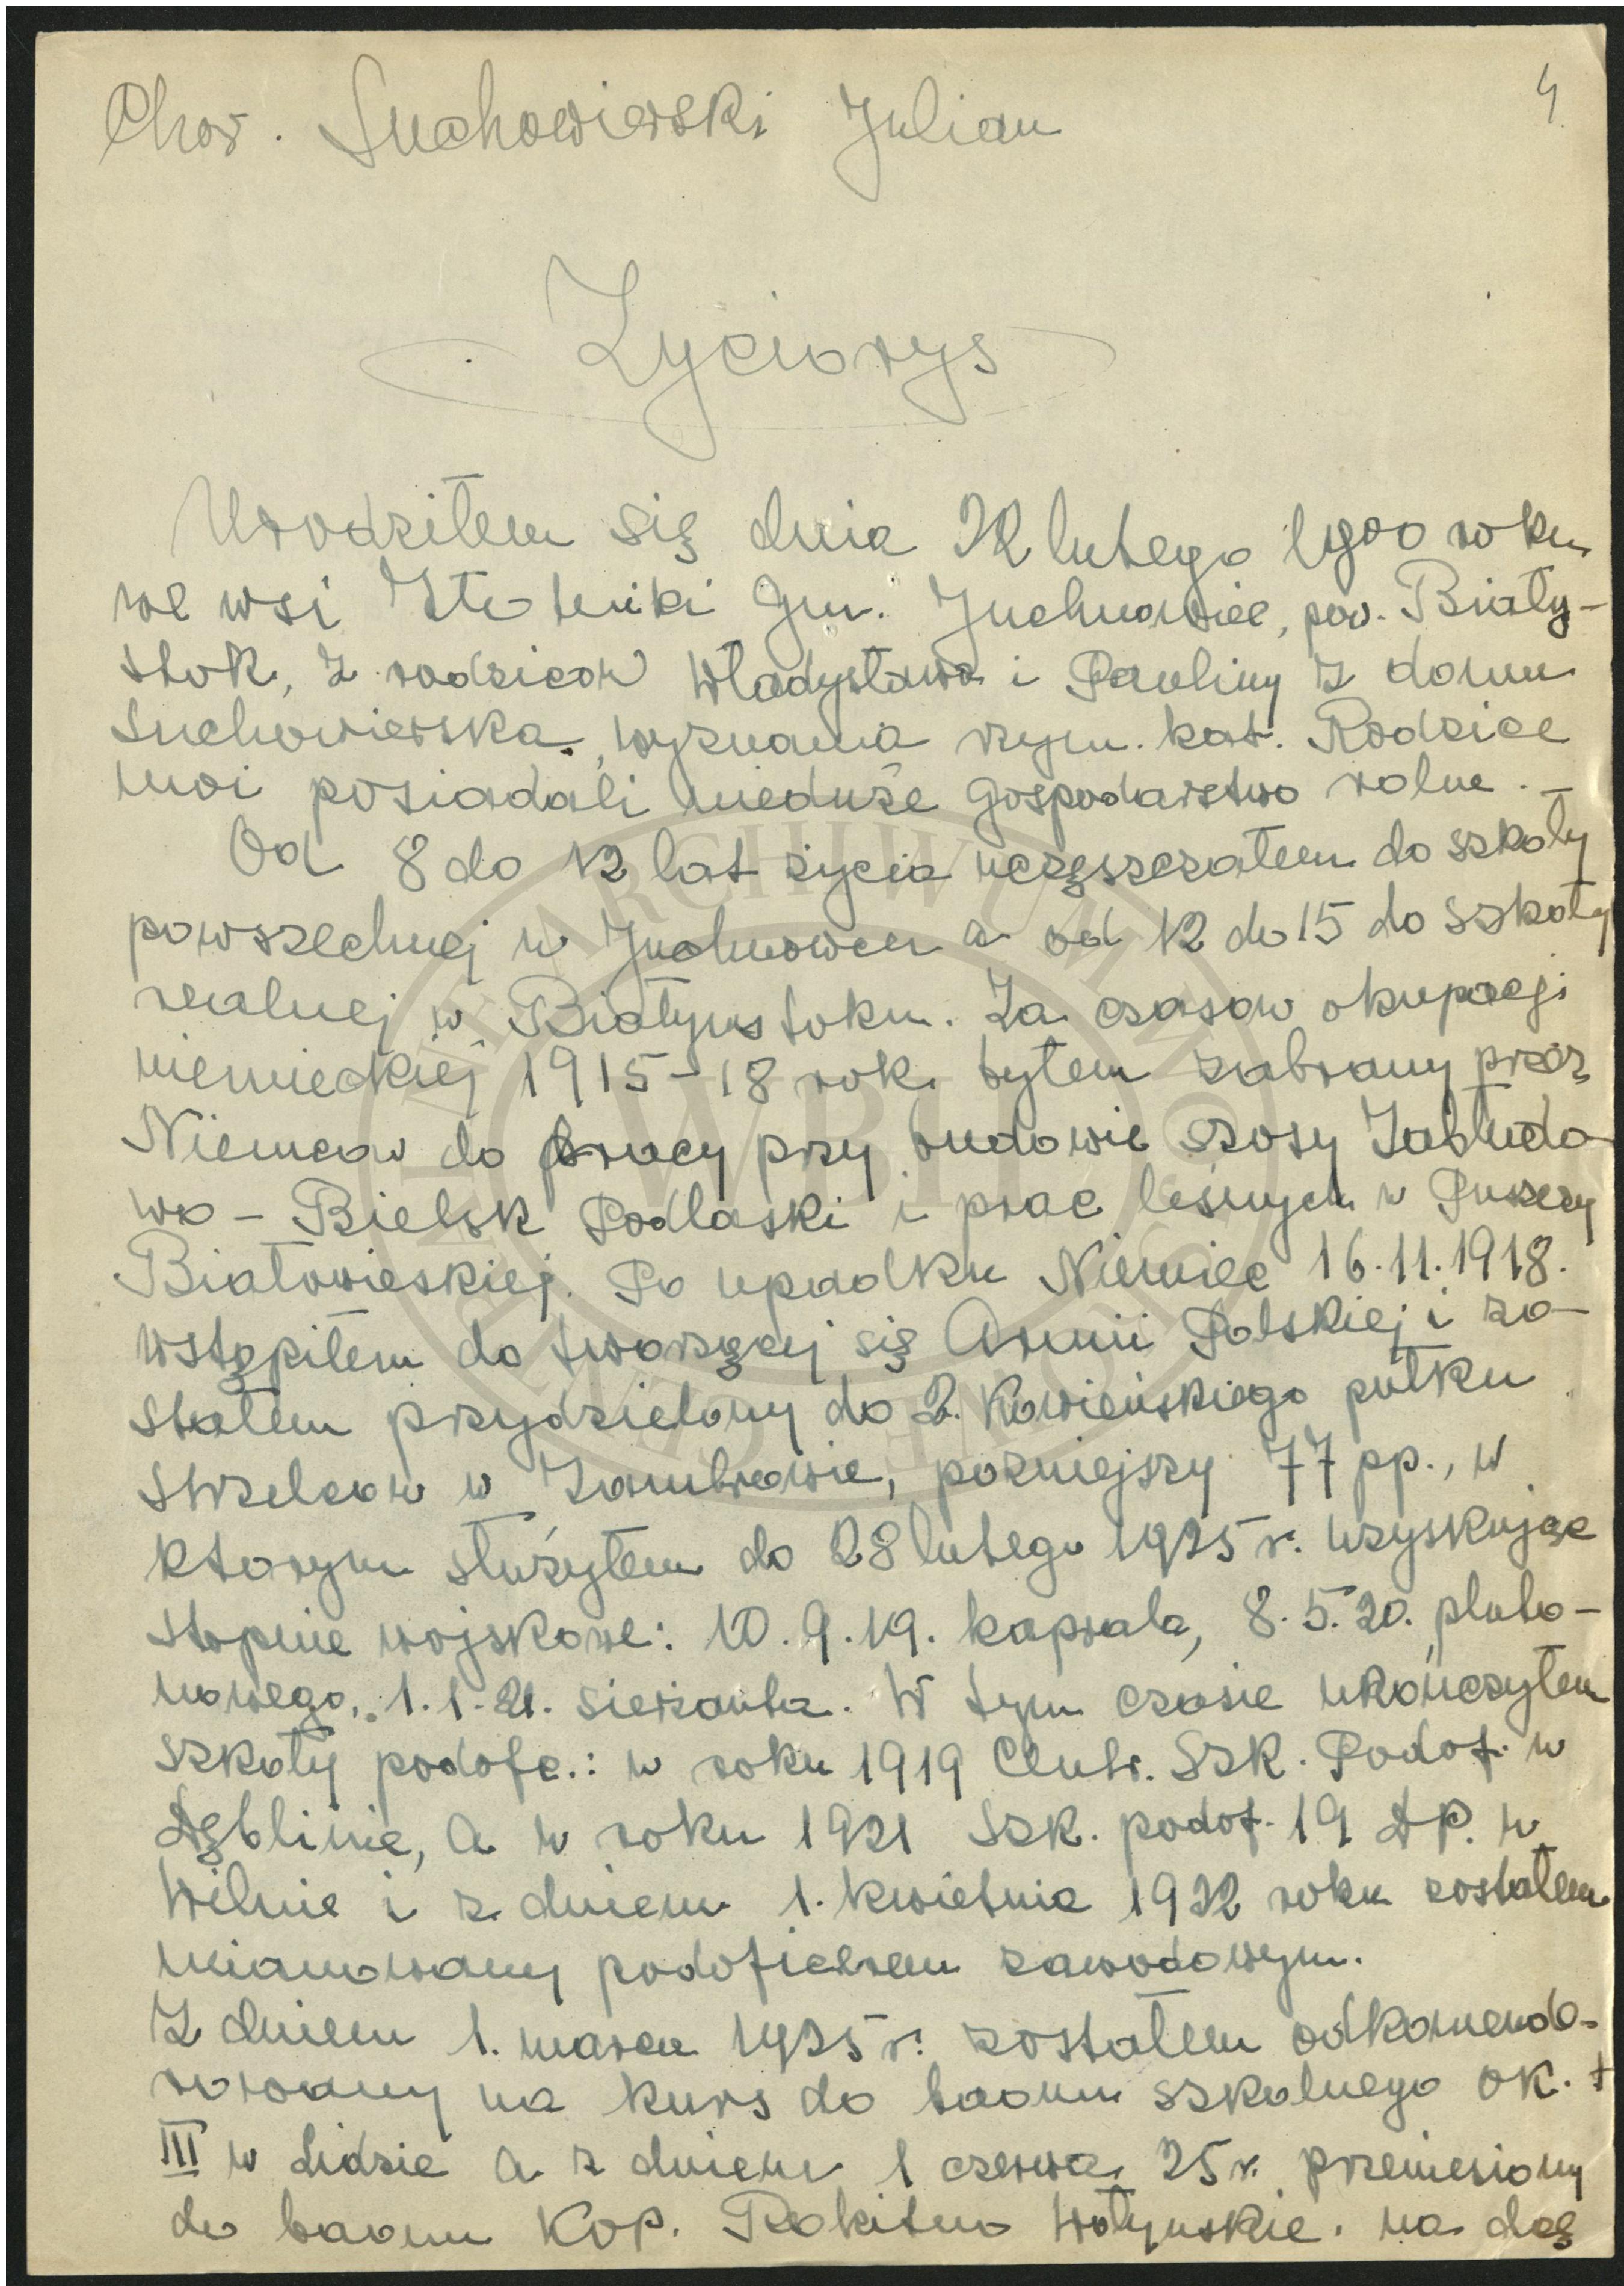 4
Chor. Suchowierski Julian
Życiorys
Urodziłem się dnia 12 lutego 1900 roku
we wsi gm. Juchnowiec, pow. Biały-
stok, z rodziców Władysława i Pauliny z domu
Suchowierska, wyznania rzym. kat. Rodzice
moi posiadali nieduże gospodarstwo rolne. -
Od 8 do 12 lat życia uczęszczałem do szkoły
powszechnej w Juchnowcu a od 12 do 15 do szkoły
realnej w Białymstoku. Za czasów okupacji
niemieckiej 1915-18 rok. byłem zabrany przez
Niemców do pracy przy budowie szosy Zabłudo
wo - Bielsk Podlaski i prac leśnych w Puszczy
Białowieskiej. Po upadku Niemiec 16.11.1918.
wstąpiłem do tworzącej się Armii Polskiej i zo-
stałem przydzielony do 2. Kowieńskiego pułku
strzelców w Zambrowie, pozniejszy 77 pp., w
ktorym służyłem do 28 lutego 1925 r. uzyskując
stopnie wojskowe: 10.9.19. kaprala, 8.5.20. pluto-
nowego, 1.1.21. sierżanta. W tym czasie ukończyłem
szkoły podofc.: w roku 1919 Centr. Szk. Podof. w
Dęblinie, a w roku 1921 Szk. podof. 19 DP. w
Wilnie i z dniem 1. kwietnia 1922 roku zostałem
mianowany podoficerem zawodowym.
Z dniem 1. marca 1925 r. zostałem odkomende-
rowany na kurs do baonu szkolnego OK.
III w Lidzie a z dniem 1 czerwca 25 r. przeniesiony
do baonu KOP. Rokitno Wołyńskie. na
ARCHIWUM
WBH